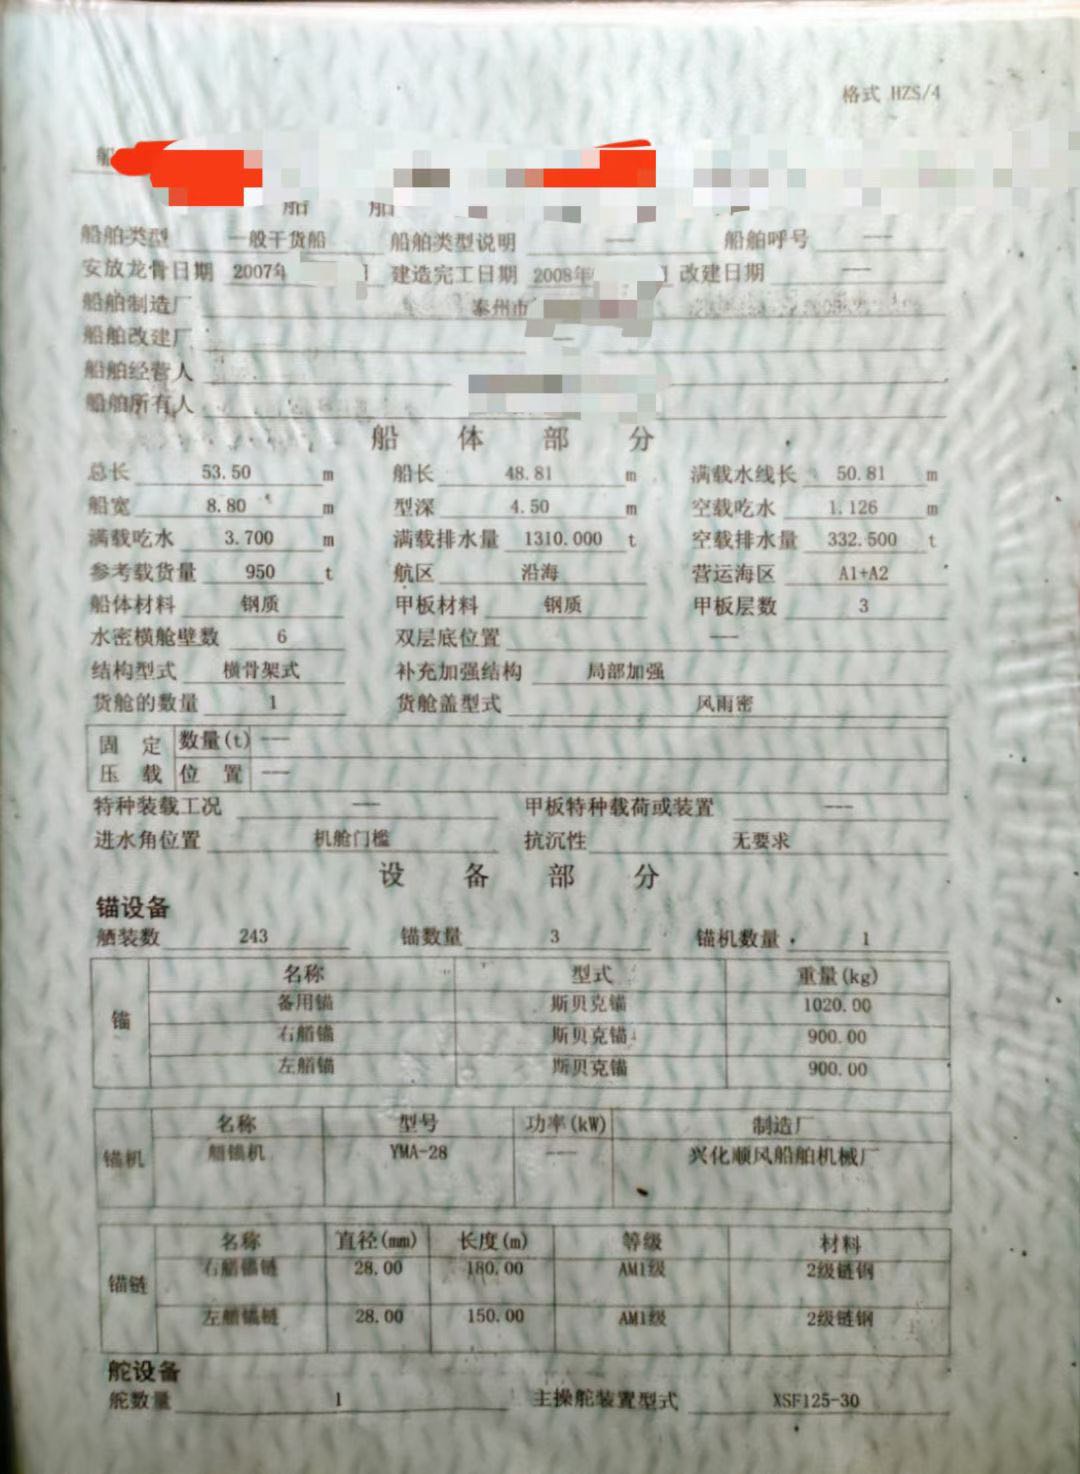 格式 HZS/4
船
船 船
船舶类型 一般干货船 船舶类型说明 --- 船舶呼号 ---
安放龙骨日期 2007年 建造完工日期 2008年 改建日期 ---
船舶制造厂 泰州市
船舶改建厂 —
船舶经营人
船舶所有人
船 体 部 分
总长 53.50 m 船长 48.81 m 满载水线长 50.81 m
船宽 8.80 m 型深 4.50 m 空载吃水 1.126 m
满载吃水 3.700 m 满载排水量 1310.000 t 空载排水量 332.500 t
参考载货量 950 t 航区 沿海 营运海区 A1+A2
船体材料 钢质 甲板材料 钢质 甲板层数 3
水密横舱壁数 6 双层底位置 ---
结构型式 横骨架式 补充加强结构 局部加强
货舱的数量 1 货舱盖型式 风雨密
固 定 数量(t) ---
压 载 位 置 ---
特种装载工况 --- 甲板特种载荷或装置 ---
进水角位置 机舱门槛 抗沉性 无要求
设 备 部 分
锚设备
舾装数 243 锚数量 3 锚机数量 1
锚 名称 型式 重量(kg)
备用锚 斯贝克锚 1020.00
右艏锚 斯贝克锚 900.00
左艏锚 斯贝克锚 900.00
锚机 名称 型号 功率(kW) 制造厂
艏锚机 YMA-28 --- 兴化顺风船舶机械厂
锚链 名称 直径(mm) 长度(m) 等级 材料
右艏锚链 28.00 180.00 AM1级 2级链钢
左艏锚链 28.00 150.00 AM1级 2级链钢
舵设备
舵数量 1 主操舵装置型式 XSF125-30